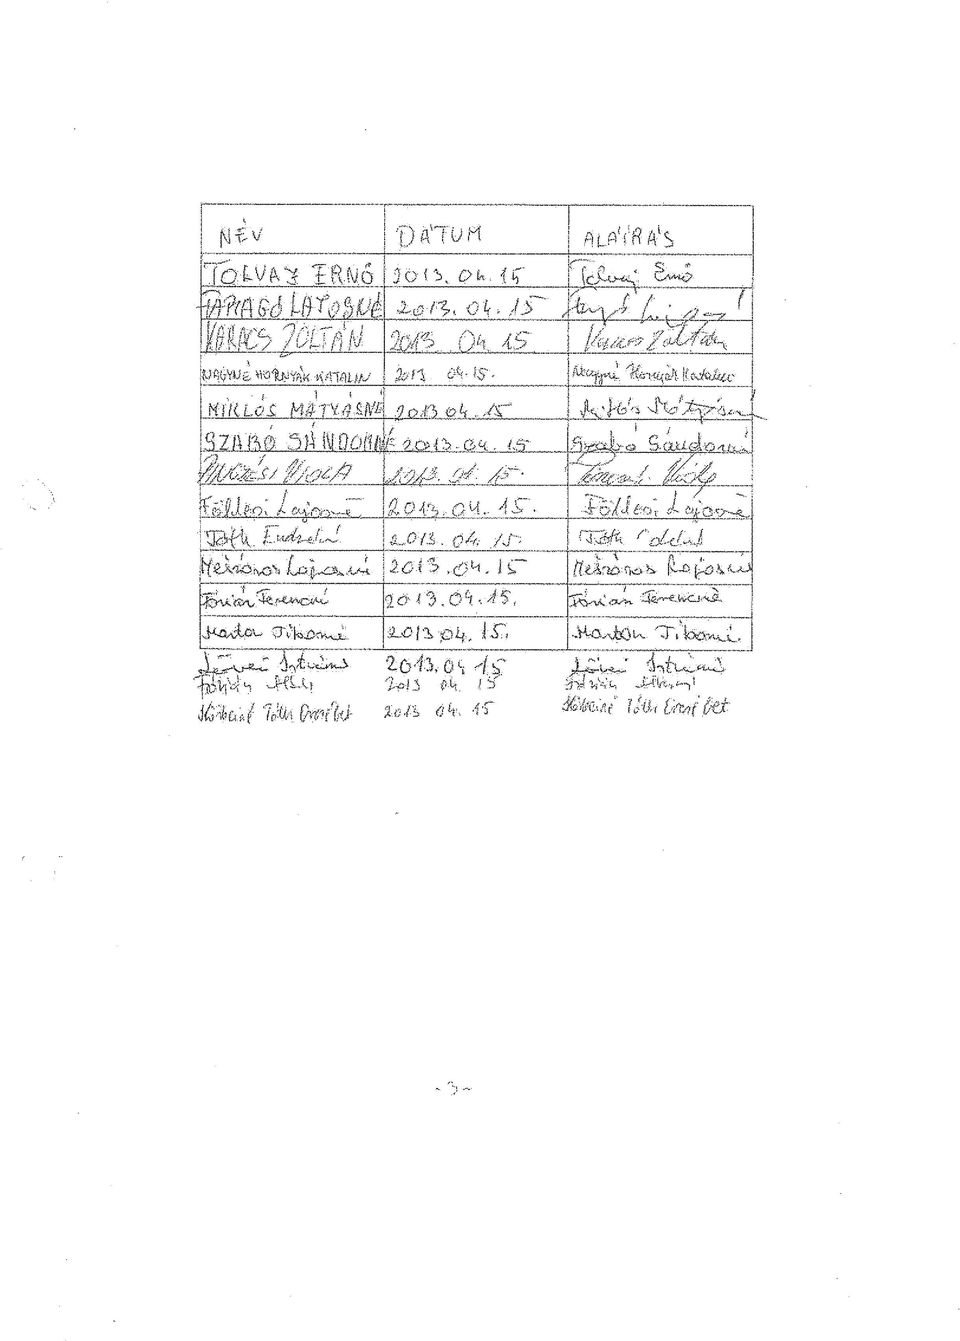 NÉV DÁTUM ALÁÍRÁS
TOLVAJ ERNŐ 2013. 04. 15 Tolvaj Ernő
LAJOSNÉ 2013. 04. 15
KARACS ZOLTÁN 2013 04 15 Karacs Zoltán
NAGYNÉ HORNYÁK KATALIN 2013 04. 15. Nagyné Hornyák Katalin
MIKLÓS MÁTYÁSNÉ 2013 04. 15 Miklós Mátyásné
SZABÓ SÁNDORNÉ 2013. 04. 15 Szabó Sándorné
VIOLA 2013. 04. 15. Viola
Földesi Lajosné 2013. 04. 15. Földesi Lajosné
Tóth 2013. 04. 15. Tóth
Mészáros Lajosné 2013. 04. 15 Mészáros Lajosné
Fórián Ferencné 2013. 04. 15. Fórián Ferencné
Tiborné 2013 04. 15. Tiborné
Istvánné 2013. 04 15 Istvánné
2013 04. 15
Tóth Erzsébet 2013 04. 15 Tóth Erzsébet
- 3 -